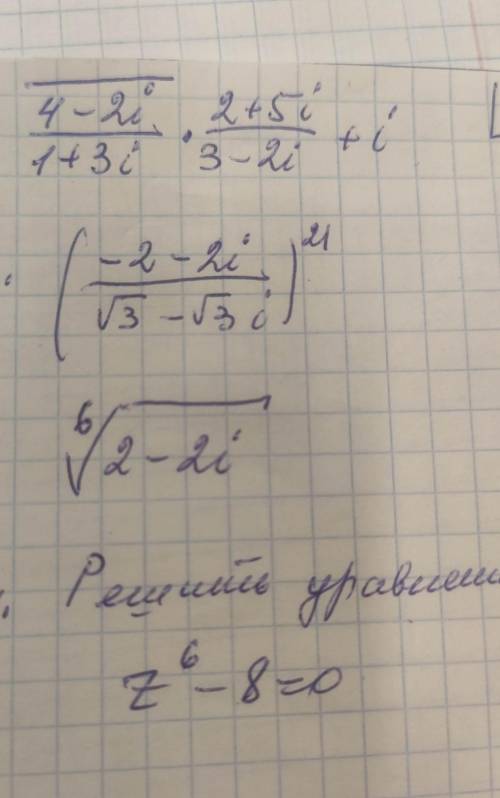 \overline{\frac{4-2i}{1+3i}} \cdot \frac{2+5i}{3-2i} + i
\left(\frac{-2-2i}{\sqrt{3}-\sqrt{3}i}\right)^{21}
\sqrt[6]{2-2i}
Решить
z^6-8=0